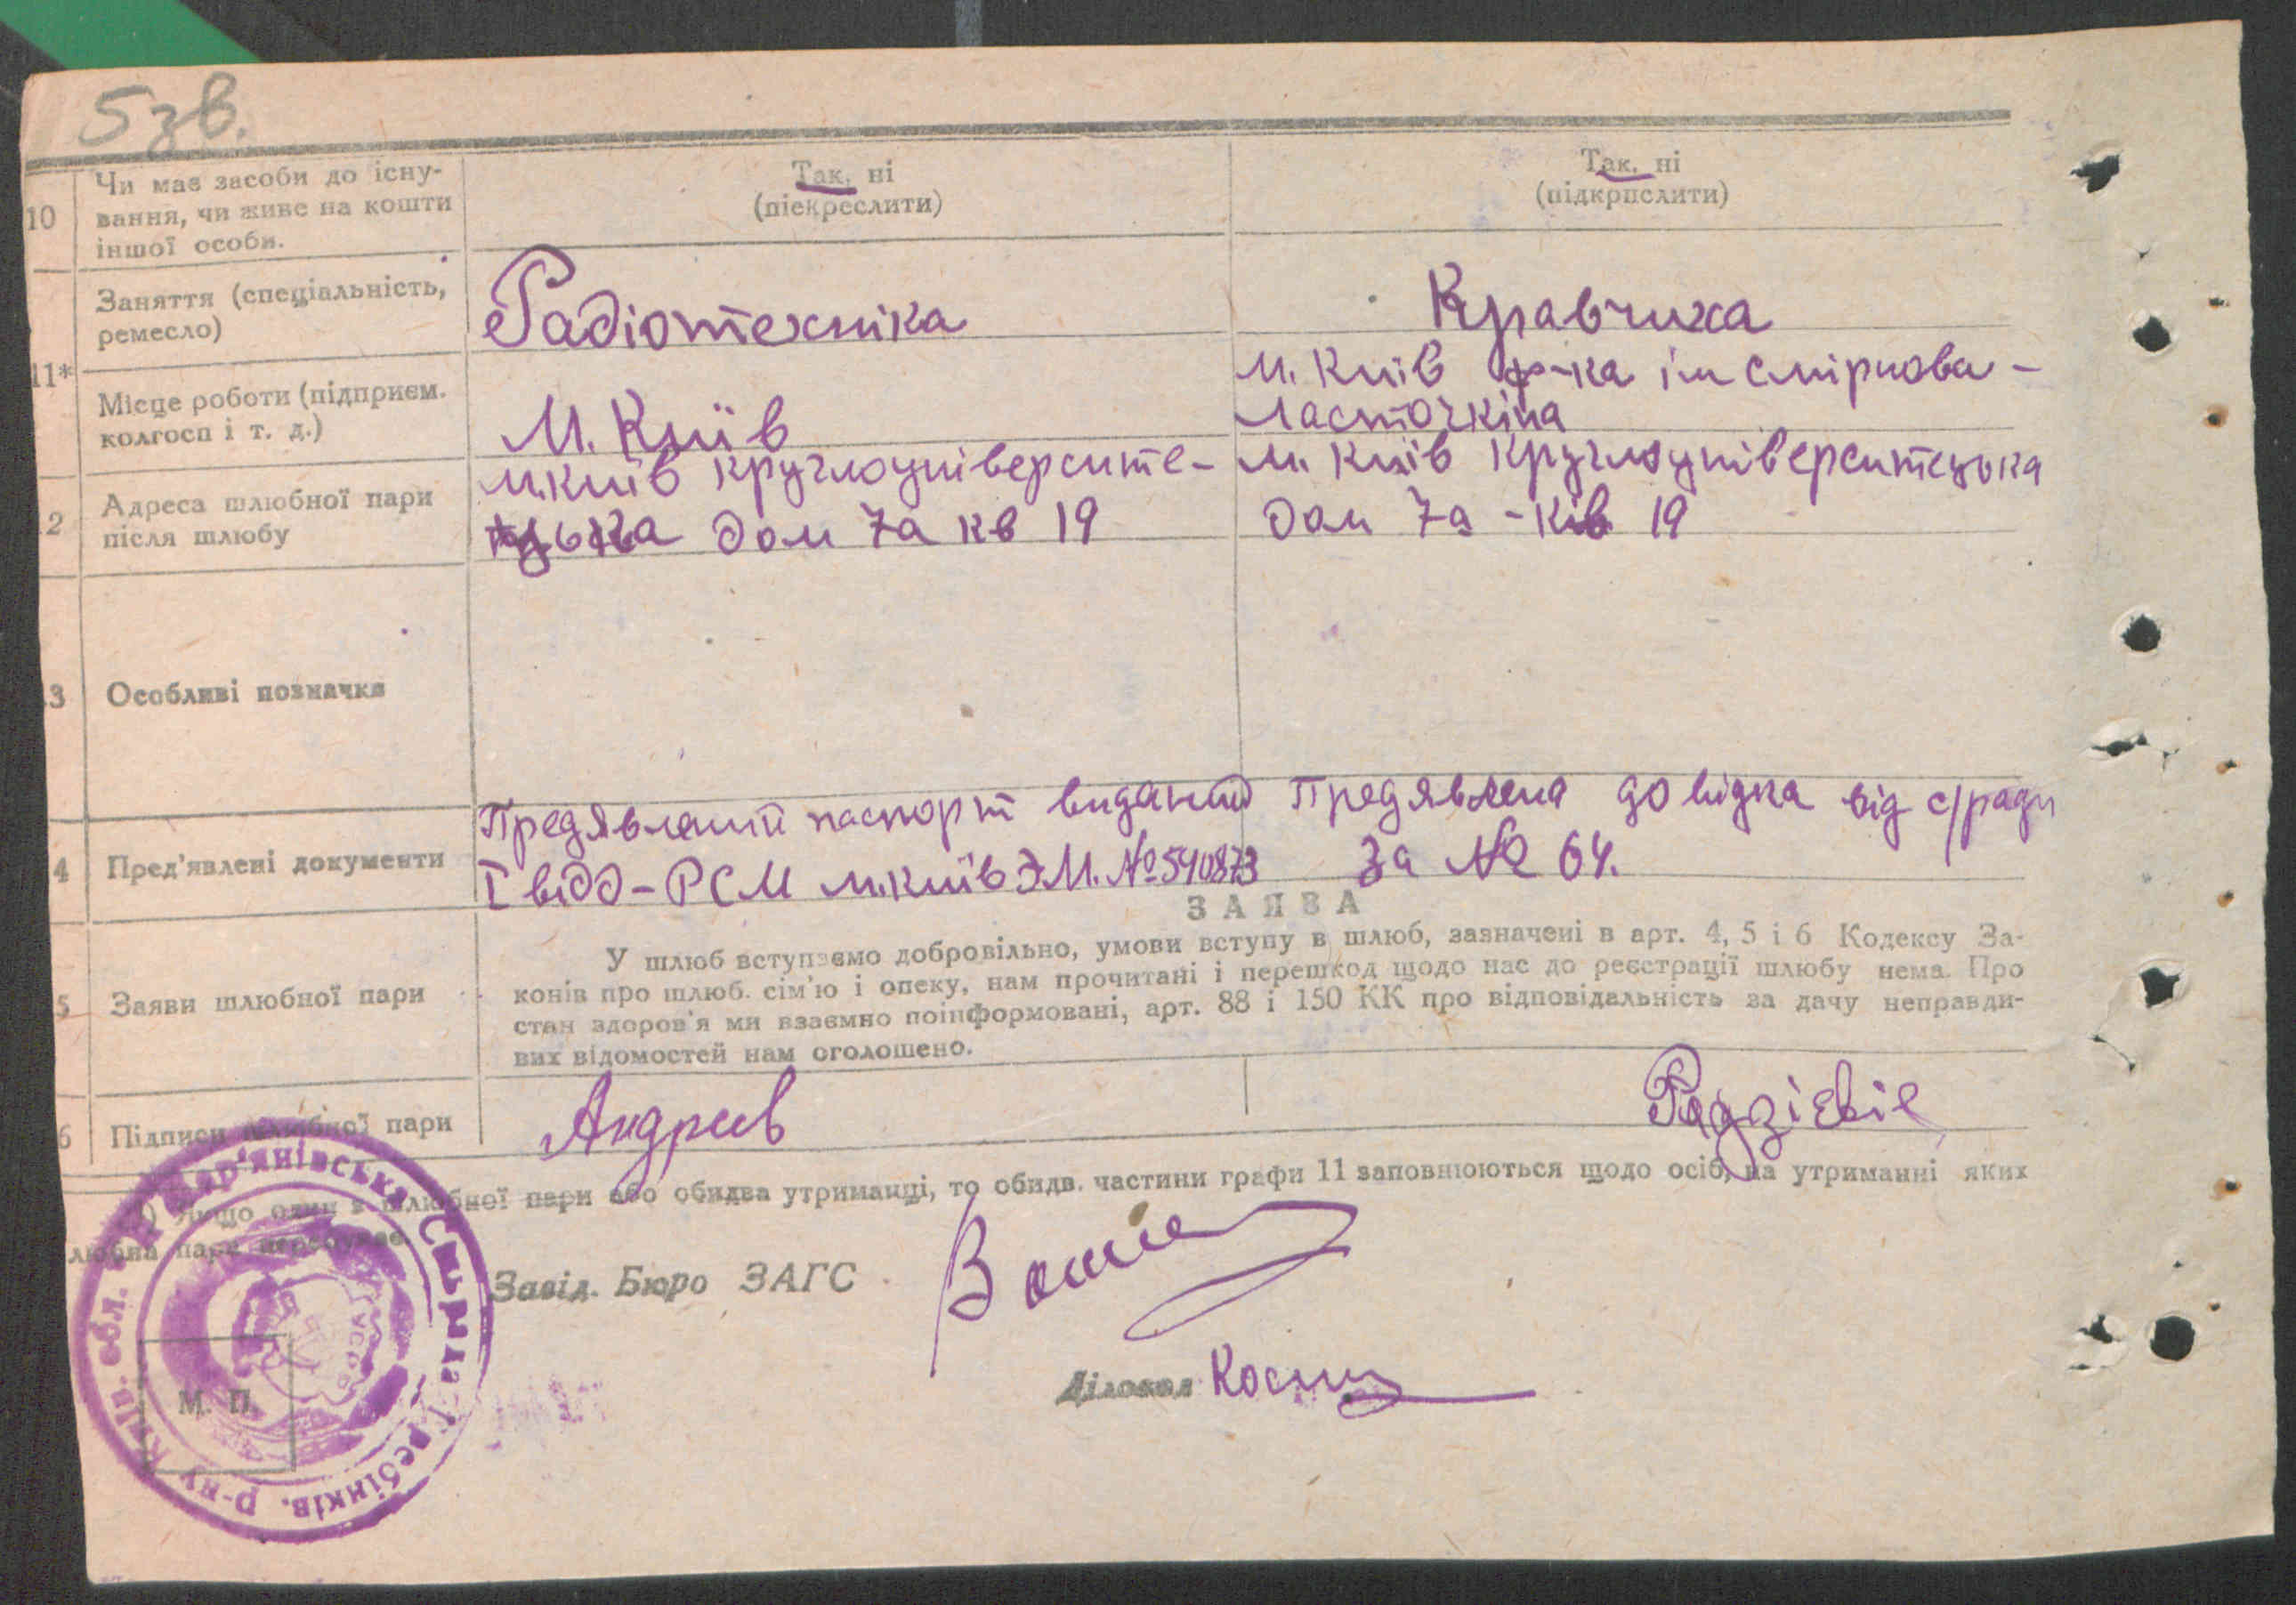 5 зв.
10 Чи має засоби до існу-
вання, чи живе на кошти
іншої особи.
Так, ні
(піекреслити)
Так, ні
(підкрислити)
Заняття (спеціальність,
ремесло)
Радіотехніка
Кравчиха
11*
Місце роботи (підприєм.
колгосп і т. д.)
М. Київ
м. Київ ф-ка ім Смірнова-
Ласточкіна
2 Адреса шлюбної пари
після шлюбу
м.Київ Круглоуніверсите-
цька дом 7а кв 19
м. Київ Круглоуніверситецька
дом 7а - кв 19
3 Особливі позначки
4 Пред'явлені документи
Предявлений паспорт виданий
I відд-РСМ м.Київ ЭМ. № 540873
Предявлена довідка від с/ради
за № 64.
ЗАЯВА
5 Заяви шлюбної пари
У шлюб вступаємо добровільно, умови вступу в шлюб, зазначені в арт. 4, 5 і 6 Кодексу За-
конів про шлюб. сім'ю і опеку, нам прочитані і перешкод щодо нас до реєстрації шлюбу нема. Про
стан здоров'я ми взаємно поінформовані, арт. 88 і 150 КК про відповідальність за дачу неправди-
вих відомостей нам оголошено.
6 Підписи шлюбної пари
Андреев
*) Якщо один з шлюбної пари або обидва утриманці, то обидв. частини графи 11 заповнюються щодо осіб, на утриманні яких
шлюбна пари перебуває
Завід. Бюро ЗАГС
Діловод
М. П.
Мар'янівська Сільрада Гребінків. р-ну Київ. обл.
УСРР